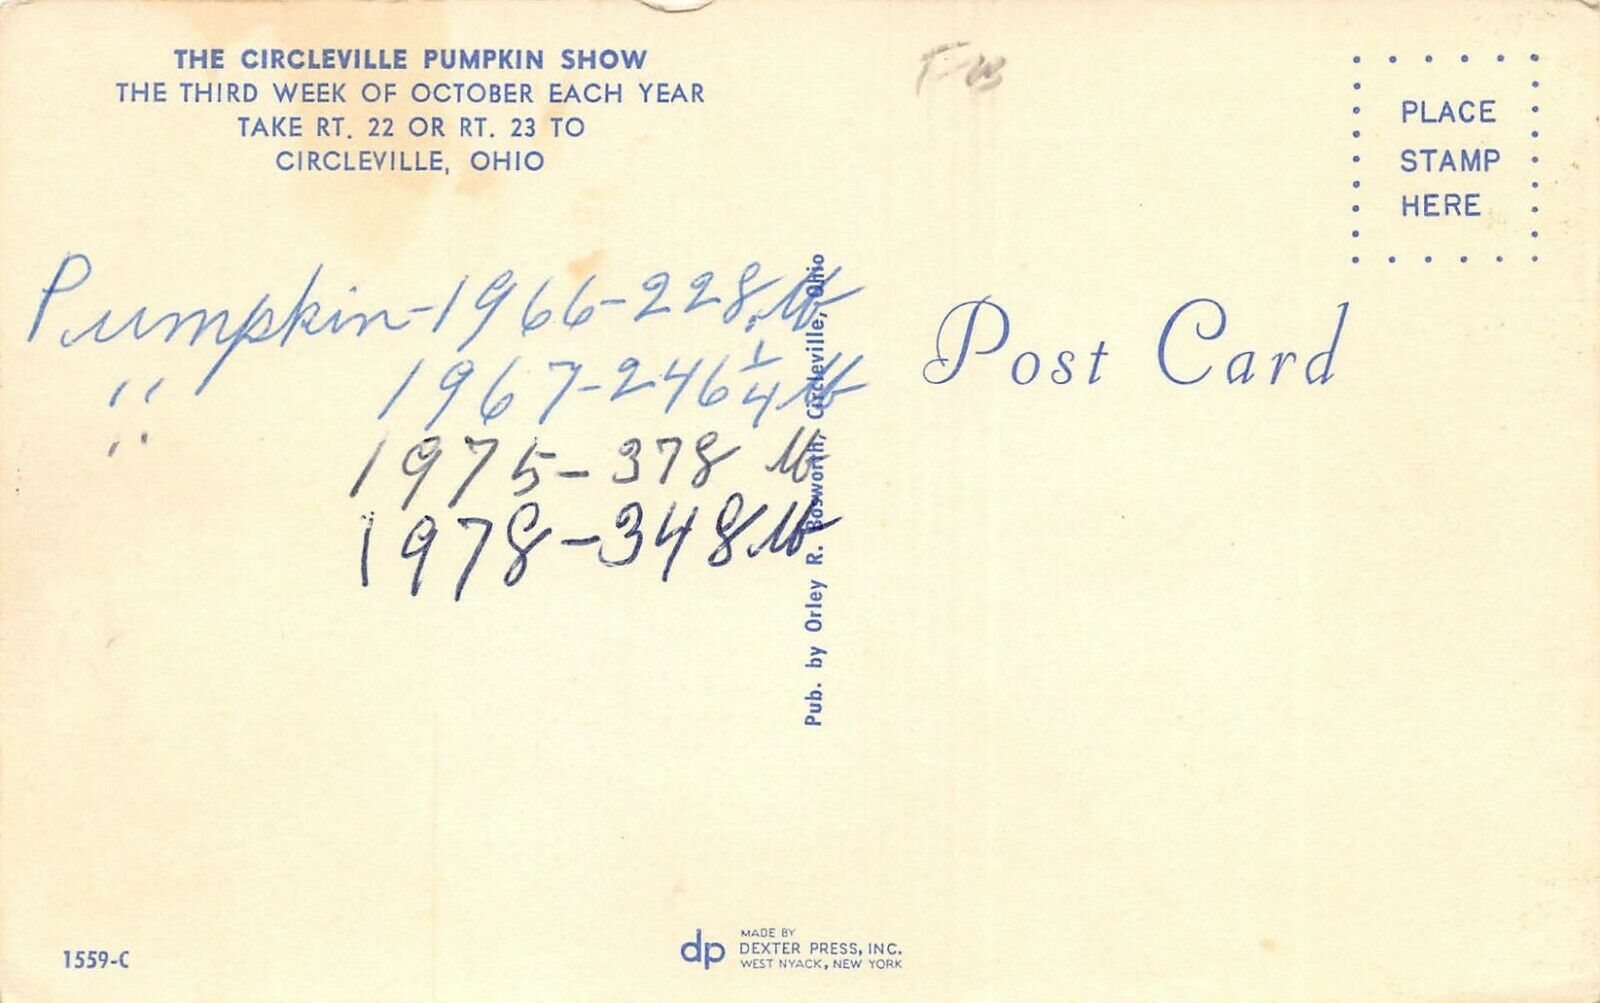 THE CIRCLEVILLE PUMPKIN SHOW
THE THIRD WEEK OF OCTOBER EACH YEAR
TAKE RT. 22 OR RT. 23 TO
CIRCLEVILLE, OHIO
PLACE
STAMP
HERE
Pumpkin-1966-228.lb
" 1967-246 1/4 lb
" 1975-378 lb
1978-348 lb
Pub. by Orley R. Bosworth, Circleville, Ohio
Post Card
1559-C
dp
MADE BY
DEXTER PRESS, INC.
WEST NYACK, NEW YORK